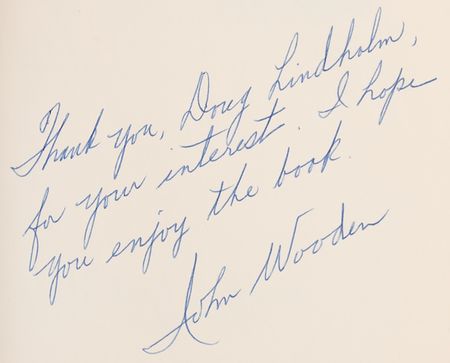 Thank you, Doug Lindholm,
for your interest. I hope
you enjoy the book.
John Wooden